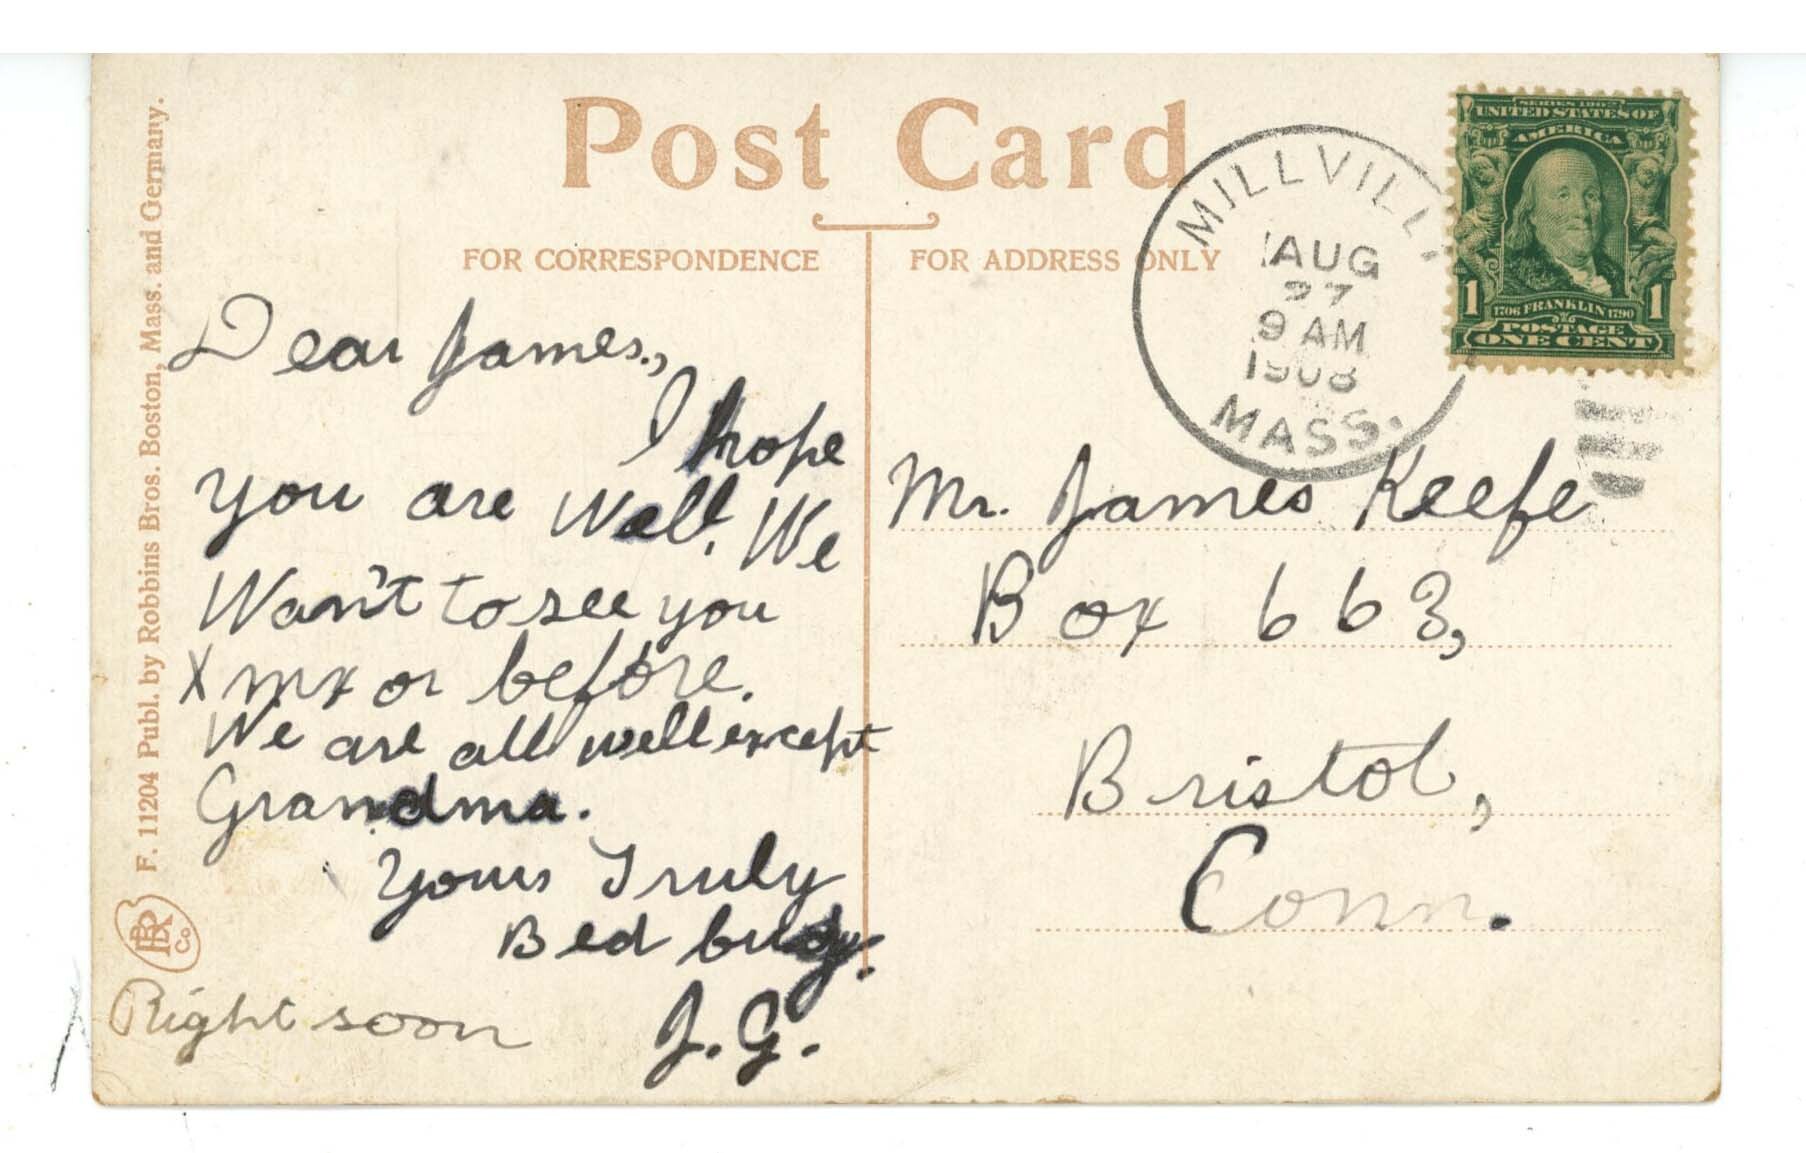 Post Card
FOR CORRESPONDENCE
FOR ADDRESS ONLY
F. 11204 Publ. by Robbins Bros. Boston, Mass. and Germany.
Co
MILLVILL
AUG
27
9 AM
1908
MASS.
SERIES 1902
UNITED STATES OF
AMERICA
1 1
1706 FRANKLIN 1790
POSTAGE
ONE CENT
Dear James.,
I hope
you are well. We
Wan't to see you
Xmx or before.
We are all well except
Grandma.
Yours Truly
Bed bug.
J. G.
Right soon
Mr. James Keefe
Box 663,
Bristol,
Conn.